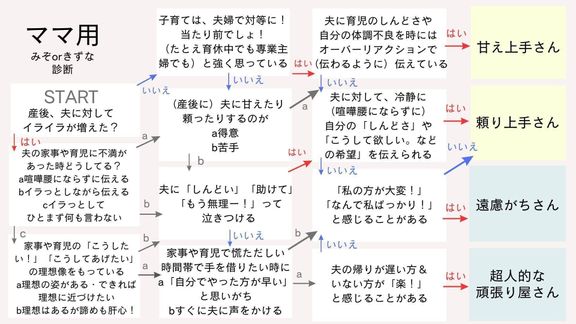 ママ用
みぞorきずな
診断
START
産後、夫に対して
イライラが増えた？
はい
いいえ
夫の家事や育児に不満が
あった時どうしてる？
a喧嘩腰にならずに伝える
bイラっとしながら伝える
cイラっとして
ひとまず何も言わない
a
b
c
家事や育児の「こうした
い！」「こうしてあげたい」
の理想像をもっている
a理想の姿がある・できれば
理想に近づけたい
b理想はあるが諦めも肝心！
b
a
子育ては、夫婦で対等に！
当たり前でしょ！
（たとえ育休中でも専業主
婦でも）と強く思っている
はい
いいえ
（産後に）夫に甘えたり
頼ったりするのが
a得意
b苦手
a
b
夫に「しんどい」「助けて」
「もう無理ー！」って
泣きつける
はい
いいえ
家事や育児で慌ただしい
時間帯で手を借りたい時に
a「自分でやった方が早い」
と思いがち
bすぐに夫に声をかける
b
a
夫に育児のしんどさや
自分の体調不良を時には
オーバーリアクションで
（伝わるように）伝えている
はい
いいえ
夫に対して、冷静に
（喧嘩腰にならずに）
自分の「しんどさ」や
「こうして欲しい。などの
の希望」を伝えられる
はい
いいえ
「私の方が大変！」
「なんで私ばっかり！」
と感じることがある
いいえ
はい
夫の帰りが遅い方＆
いない方が「楽！」
と感じることがある
いいえ
はい
甘え上手さん
頼り上手さん
遠慮がちさん
超人的な
頑張り屋さん